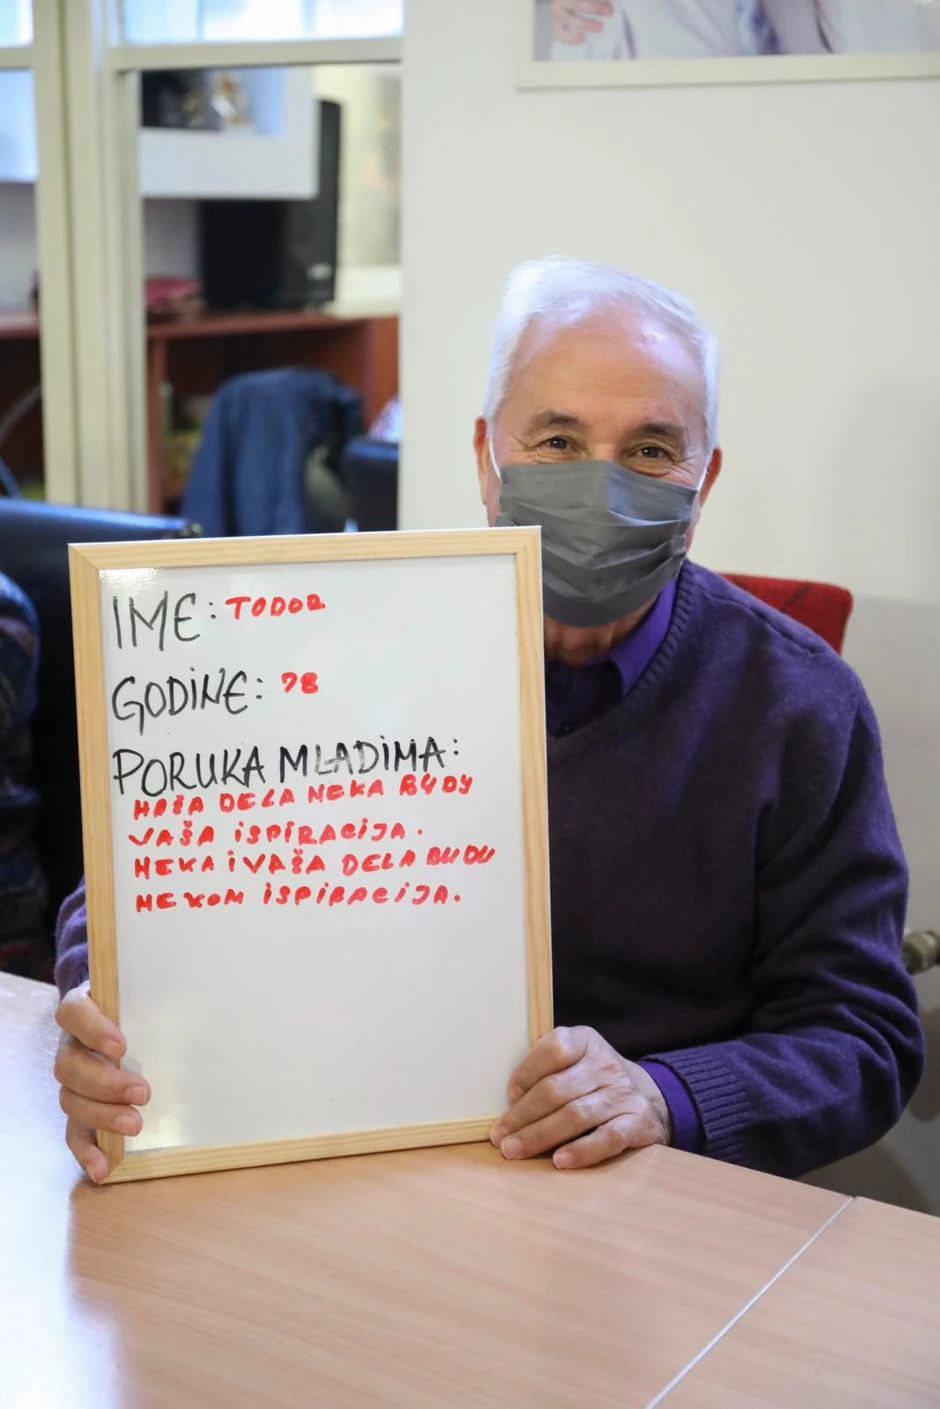 IME: TODOR
GODINE: 78
PORUKA MLADIMA:
NAŠA DELA NEKA BUDU
VAŠA ISPIRACIJA.
NEKA I VAŠA DELA BUDU
NEKOM ISPIRACIJA.